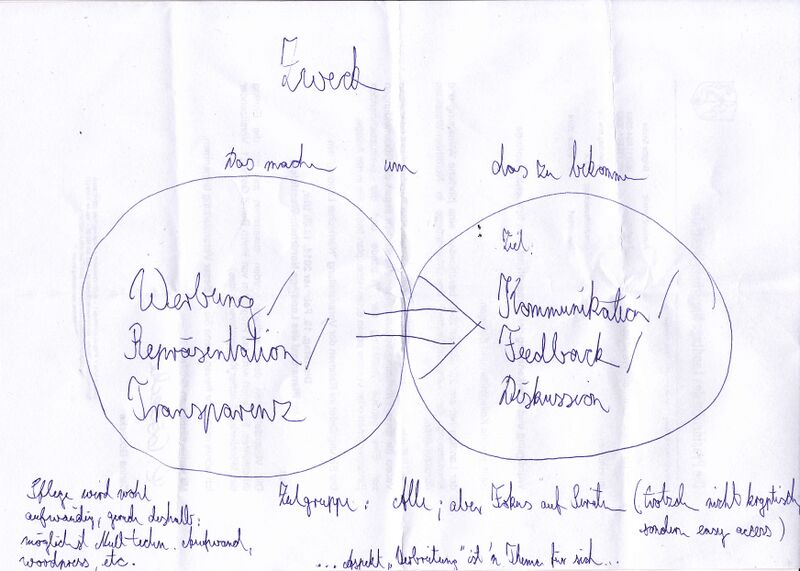 Zweck
Das machen um das zu bekommen
Werbung/
Repräsentation/
Transparenz
Ziel:
Kommunikation/
Feedback/
Diskussion
Pflege wird wohl
aufwändig, gerade deshalb:
möglichst Null techn. Aufwand,
wordpress, etc.
Zielgruppe: Alle; aber Fokus auf Piraten (trotzdem nicht kryptisch
sondern easy access)
... Aspekt „Verbreitung" ist'n Thema für sich...